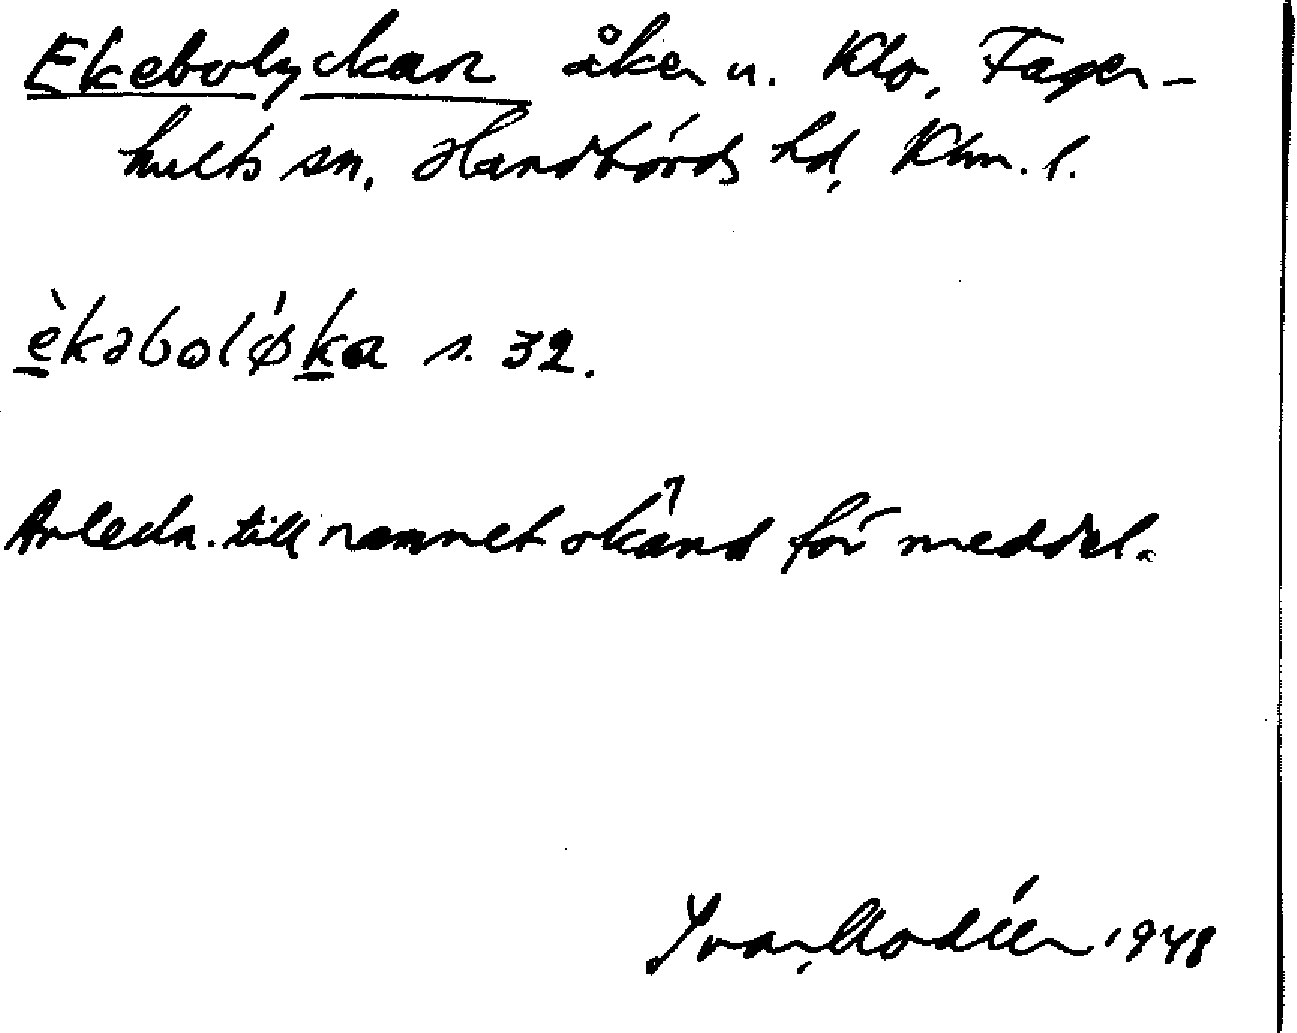 Ekebolyckan åker u. Klo, Fager-
hults sn. Handbörds hd, Klm. l.
èkəbolǿka s. 32.
Anledn. till namnet okänd för meddel.
Ivar Modéer 1948